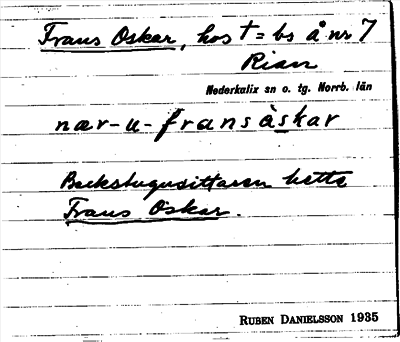 Frans Oskar, hos t = bs å nr 7
Rian
Nederkalix sn o. tg. Norrb. län
nær-u-fransàskar
Backstugusittaren hette
Frans Oskar.
RUBEN DANIELSSON 1935